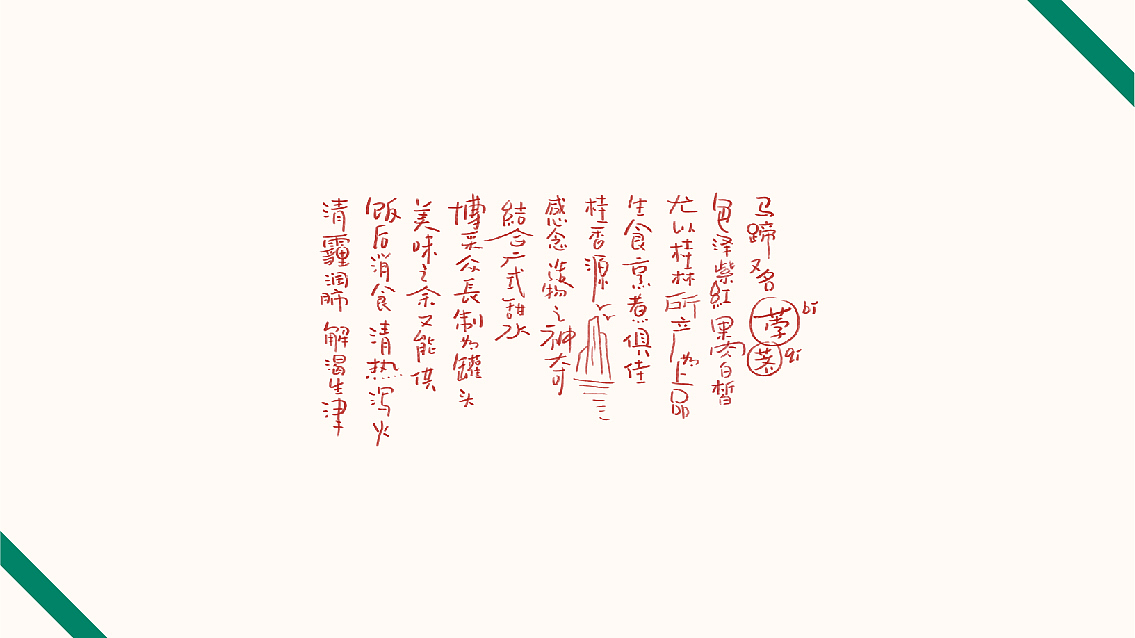 马蹄又名荸荠 bi qi
色泽紫紅果肉白皙
尤以桂林所产为上品
生食烹煮俱佳
桂香源
感念造物之神奇
結合广式甜水
博采众長制为罐头
美味之余又能供
飯后消食清热泻火
清霾润肺解渴生津